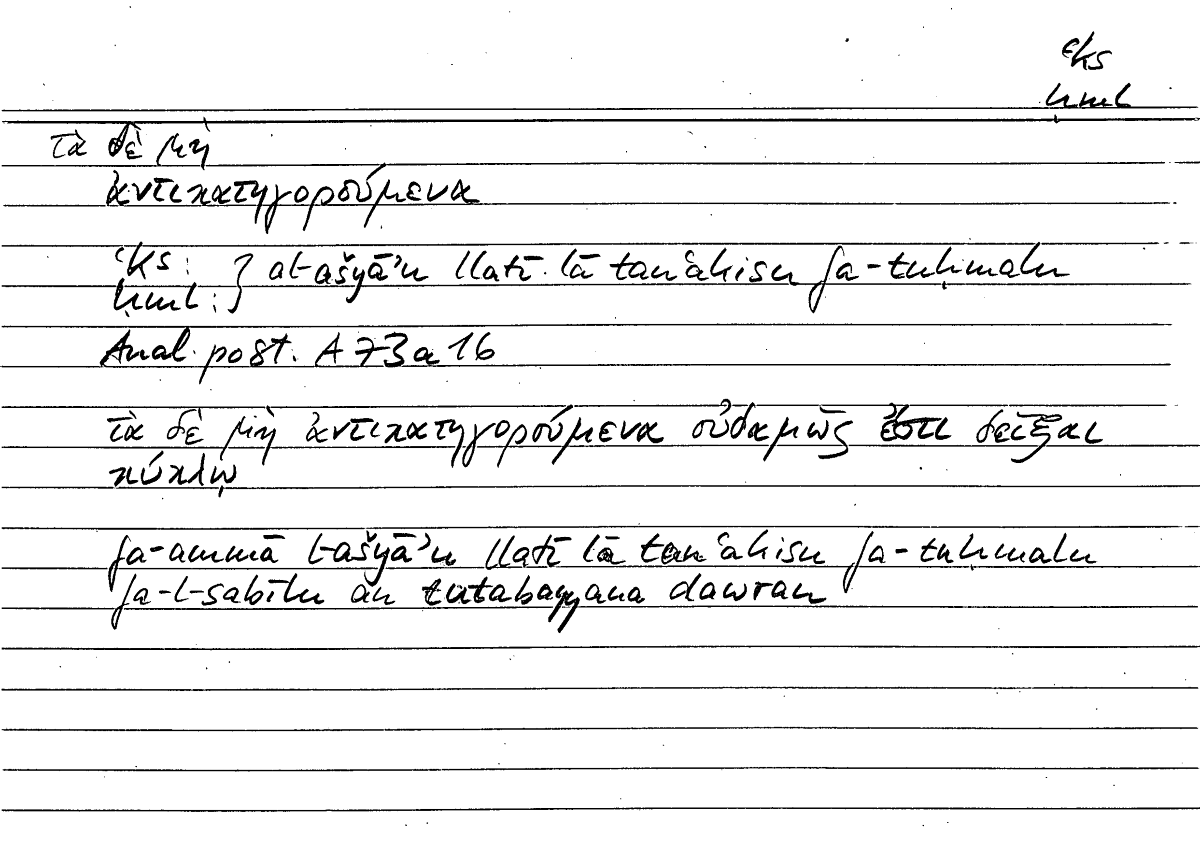 ʿks
ḥml
τὰ δὲ μὴ
ἀντικατηγορούμενα
ʿks : } al-ašyāʾu llatī lā tanʿakisu fa-tuḥmalu
ḥml :
Anal. post. A 73 a 16
τὰ δὲ μὴ ἀντικατηγορούμενα οὐδαμῶς ἔστι δεῖξαι
κύκλῳ
fa-ammā l-ašyāʾu llatī lā tanʿakisu fa-tuḥmalu
fa-l-sabīlu an tutabayyana dawran